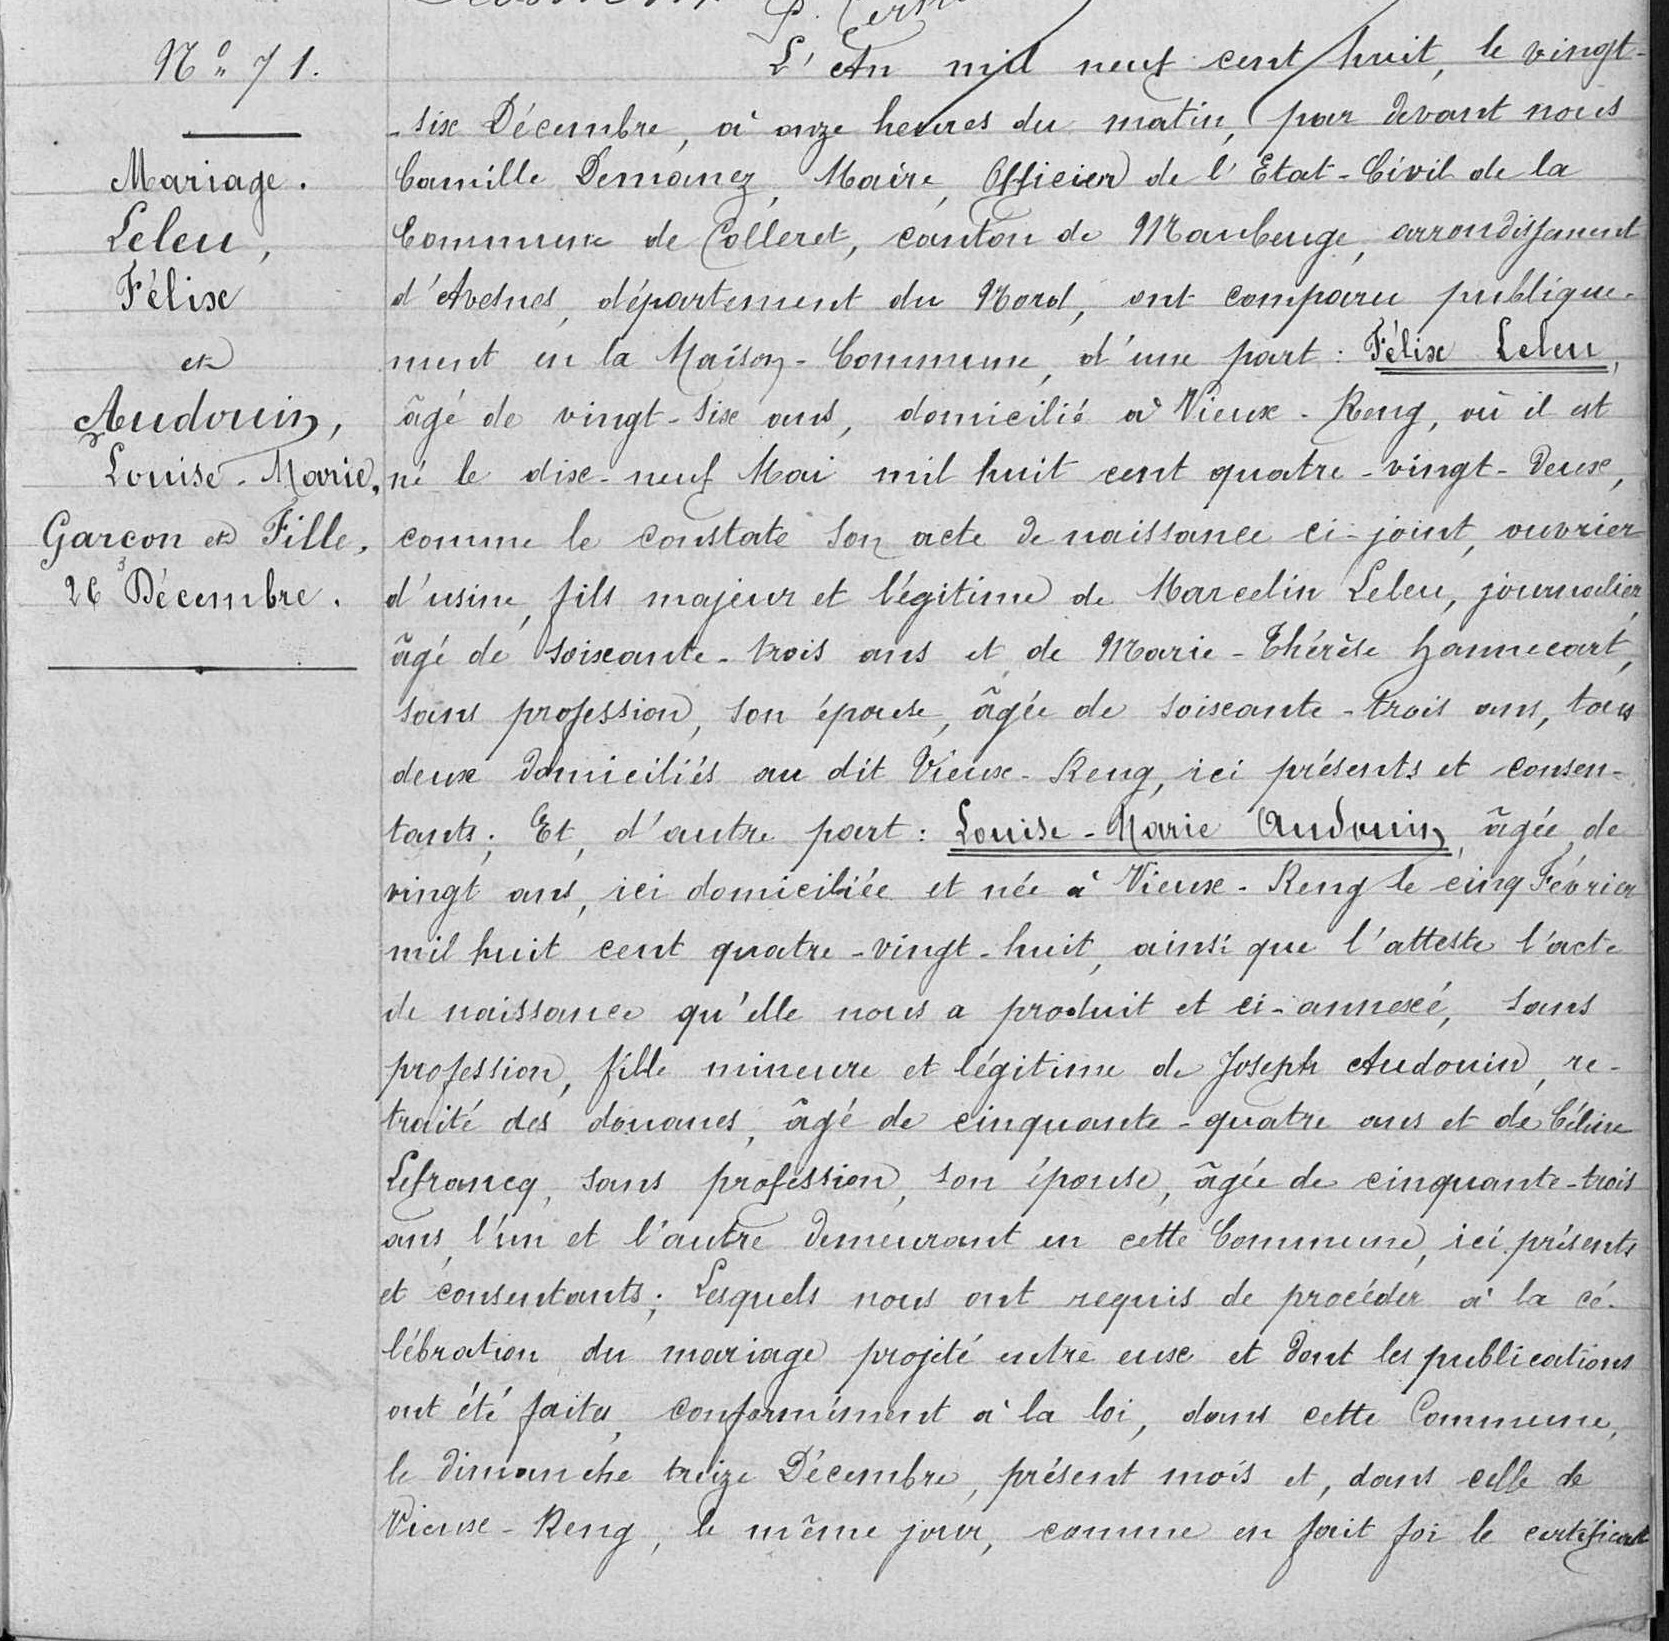 N° 71.
Mariage.
Leleu,
Félix
et
Audouin,
Louise-Marie,
Garçon et Fille.
26 Décembre.
L'An mil neuf cent huit, le vingt-
-six Décembre, à onze heures du matin, par devant nous
Camille Demanez, Maire, Officier de l'Etat-Civil de la
Commune de Colleret, canton de Maubeuge, arrondissement
d'Avesnes, département du Nord, ont comparu publique-
ment en la Maison-Commune, d'une part : Félix Leleu,
âgé de vingt-six ans, domicilié à Vieux-Reng, où il est
né le dix-neuf Mai mil huit cent quatre-vingt-deux,
comme le constate son acte de naissance ci-joint, ouvrier
d'usine, fils majeur et légitime de Marcelin Leleu, journalier,
âgé de soixante-trois ans et de Marie-Thérèse Hannecart,
sans profession, son épouse, âgée de soixante-trois ans, tous
deux domiciliés au dit Vieux-Reng, ici présents et consen-
tants; Et, d'autre part : Louise-Marie Audouin, âgée de
vingt ans, ici domiciliée et née à Vieux-Reng le cinq Février
mil huit cent quatre-vingt-huit, ainsi que l'atteste l'acte
de naissance qu'elle nous a produit et ci-annexé, sans
profession, fille mineure et légitime de Joseph Audouin, re-
traité des douanes, âgé de cinquante-quatre ans et de Céline
Lefrancq, sans profession, son épouse, âgée de cinquante-trois
ans, l'un et l'autre demeurant en cette Commune, ici présents
et consentants; Lesquels nous ont requis de procéder à la cé-
lébration du mariage projeté entre eux et dont les publications
ont été faites, conformément à la loi, dans cette Commune,
le dimanche treize Décembre, présent mois et, dans celle de
Vieux-Reng, le même jour, comme en fait foi le certificat